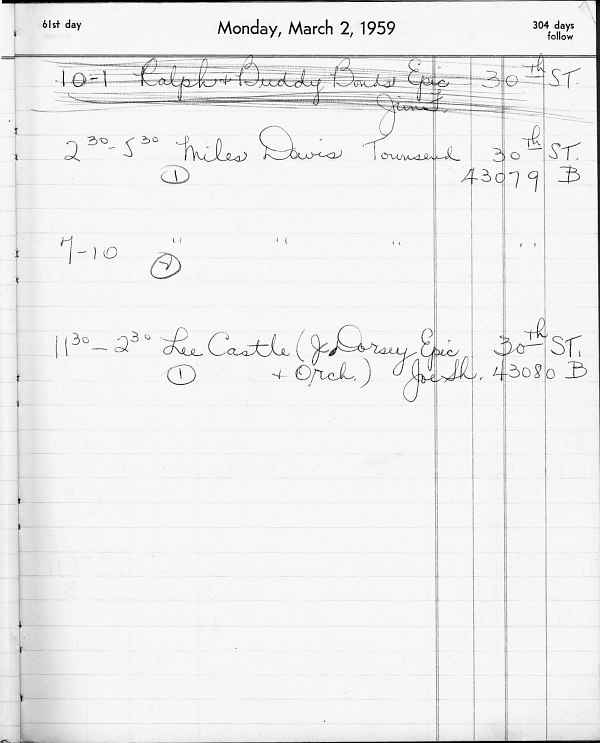 61st day Monday, March 2, 1959 304 days follow
10-1 Ralph + Buddy Bonds Epic 30th ST.
Jim F.
2 30 - 5 30 Miles Davis Townsend 30th ST.
1 43079 B
7-10 " " " "
2
11 30 - 2 30 Lee Castle (J. Dorsey Epic 30th ST.
1 + Orch.) Joe Sh. 43080 B